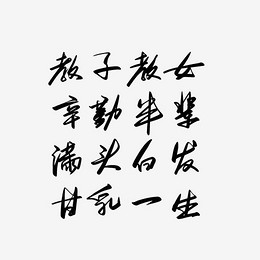 教子教女
辛勤半辈
满头白发
甘乳一生